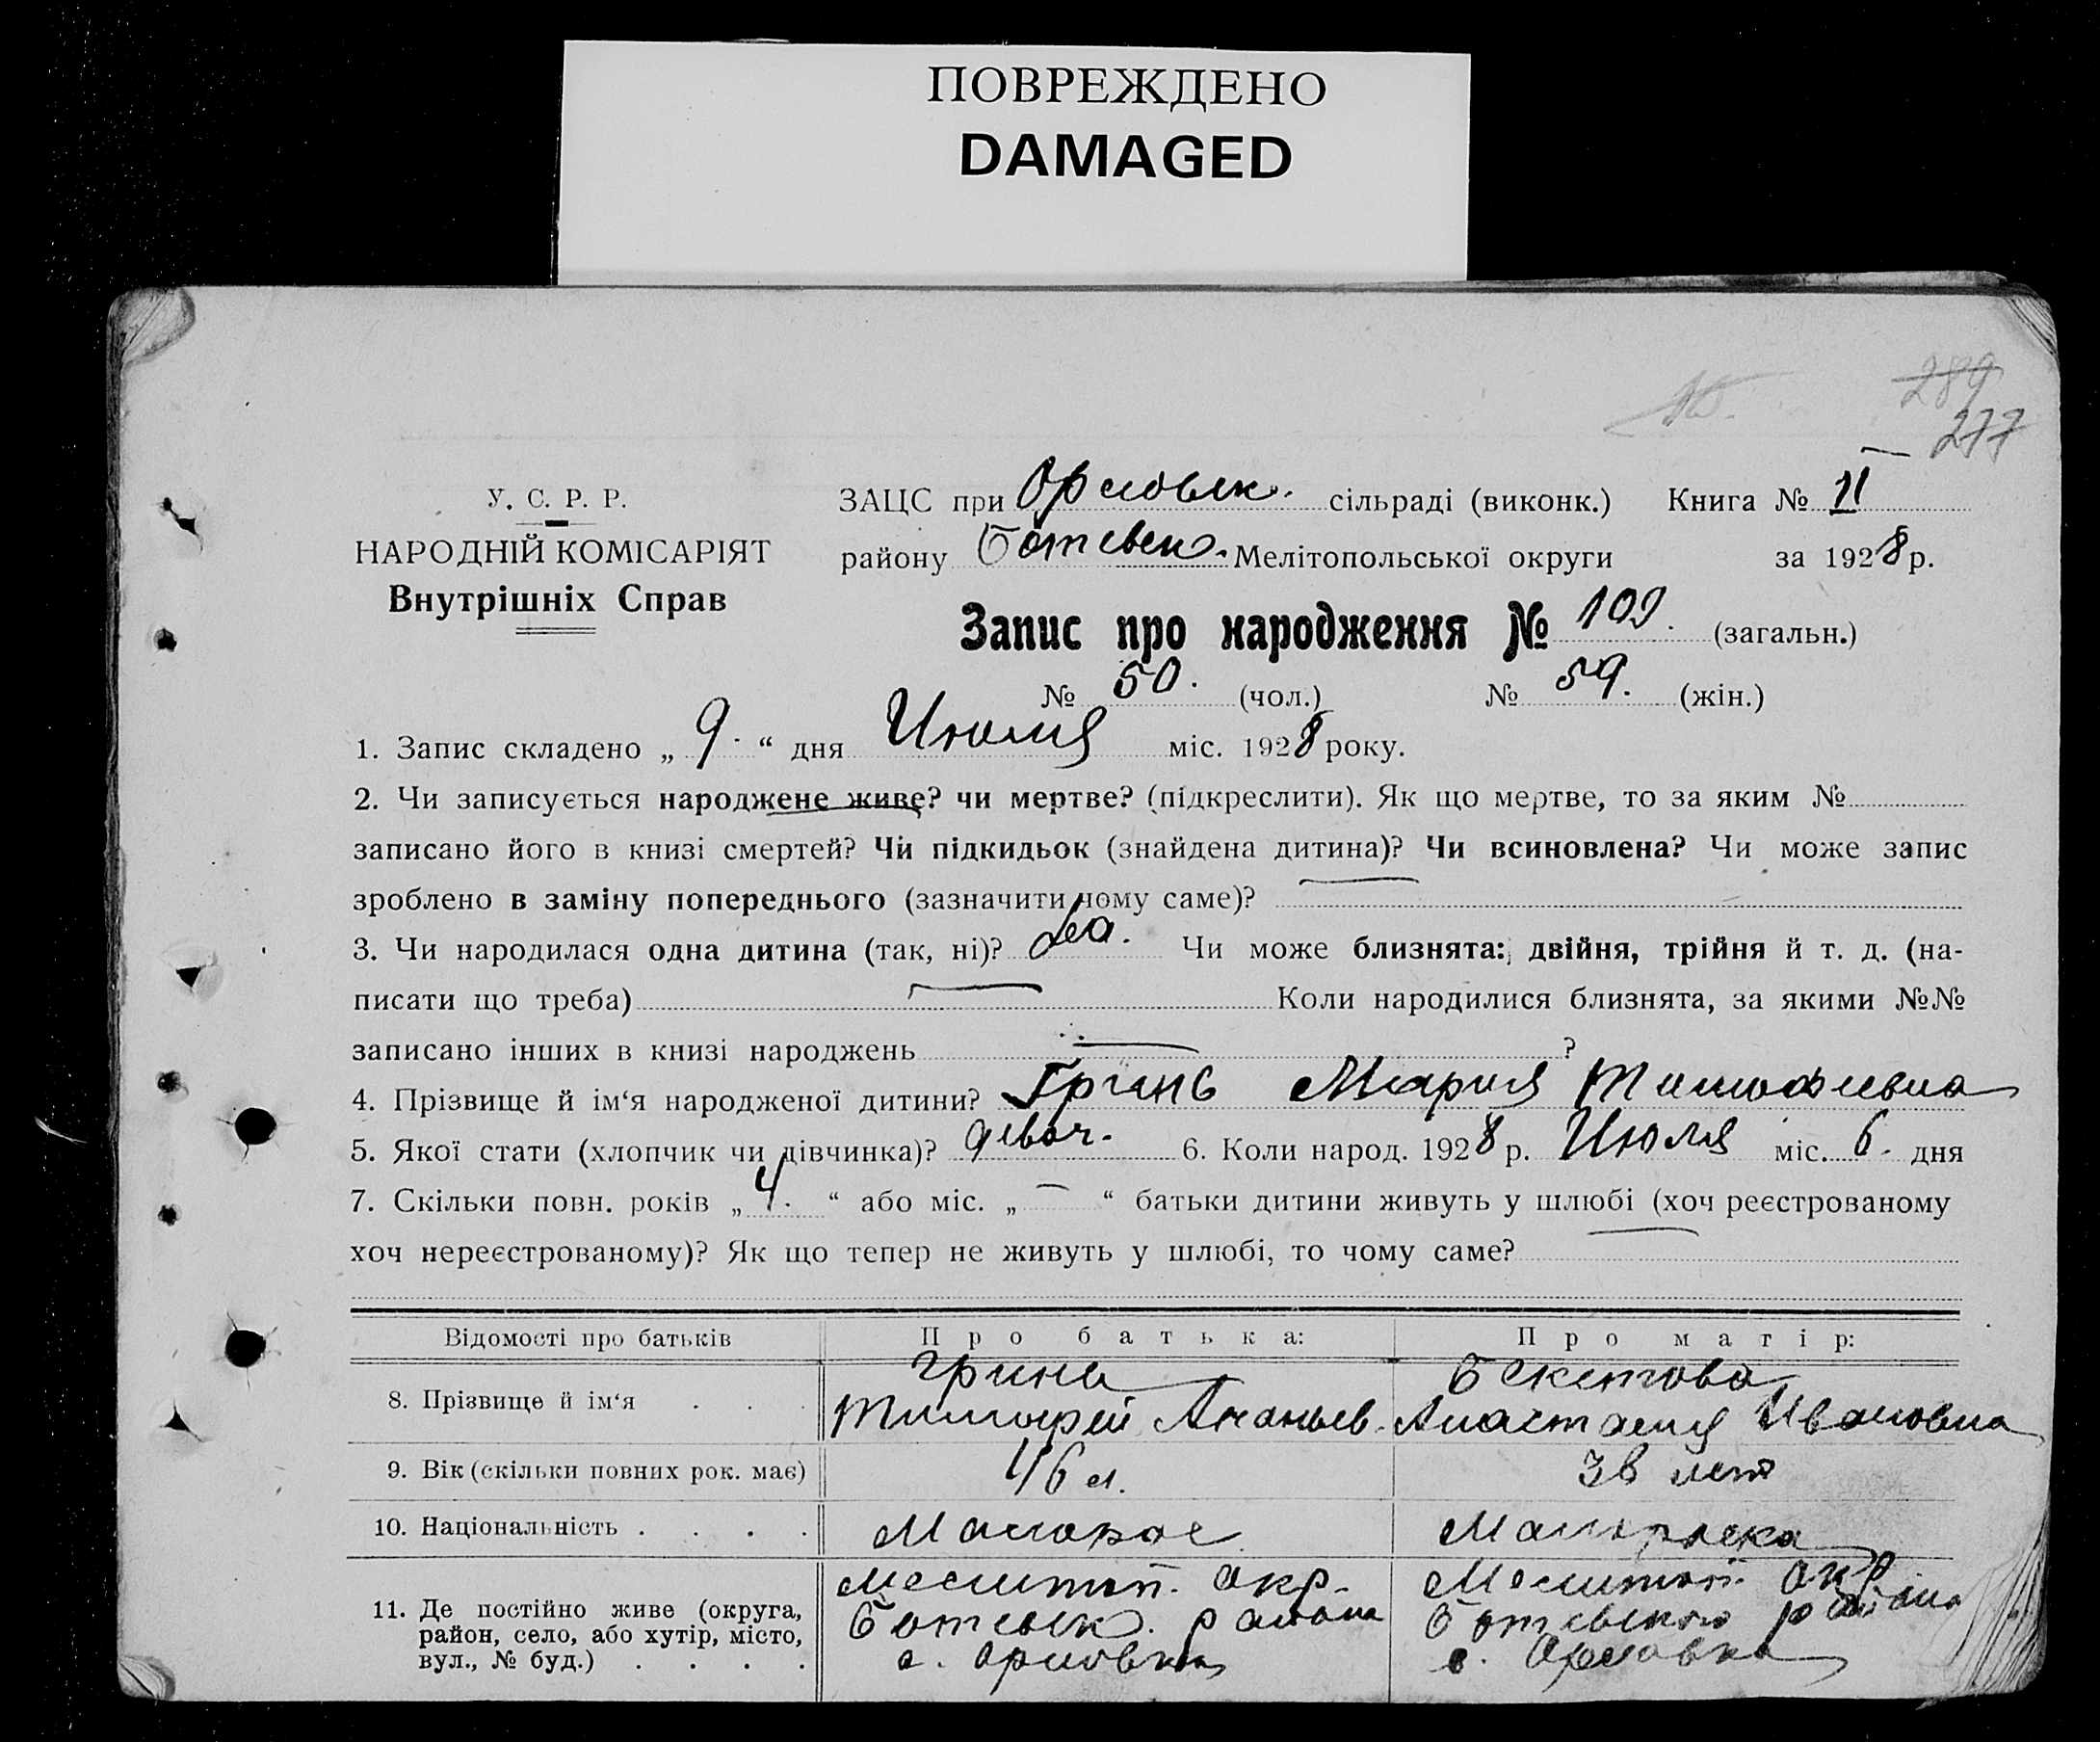 ПОВРЕЖДЕНО
DAMAGED
289
277
У. С. Р. Р.
НАРОДНІЙ КОМІСАРІЯТ
Внутрішніх Справ
ЗАЦС при Орловск. сільраді (виконк.) Книга № II
району Ботевск. Мелітопольської округи за 1928 р.
Запис про народження № 109. (загальн.)
№ 50. (чол.) № 59. (жін.)
1. Запис складено „ 9. “ дня Июля міс. 1928 року.
2. Чи записується народжене живе? чи мертве? (підкреслити). Як що мертве, то за яким №
записано його в книзі смертей? Чи підкидьок (знайдена дитина)? Чи всиновлена? Чи може запис
зроблено в заміну попереднього (зазначити чому саме)? —
3. Чи народилася одна дитина (так, ні)? да. Чи може близнята: двійня, трійня й т. д. (на-
писати що треба) — Коли народилися близнята, за якими №№
записано інших в книзі народжень — ?
4. Прізвище й ім‘я народженої дитини? Гринь Мария Тимофеевна
5. Якої стати (хлопчик чи дівчинка)? девоч. 6. Коли народ. 1928 р. Июля міс. 6. дня
7. Скільки повн. років „ 4. “ або міс. „ — “ батьки дитини живуть у шлюбі (хоч реєстрованому
хоч нереєстрованому)? Як що тепер не живуть у шлюбі, то чому саме? —
Відомості про батьків Про батька: Про матір:
8. Прізвище й ім‘я Гринь Тимофей Ананьев. Бекетова Анастасия Ивановна
9. Вік (скільки повних рок. має) 46 л. 38 лет
10. Національність Малорос Малороска
11. Де постійно живе (округа, район, село, або хутір, місто, вул., № буд.) Мелитоп. окр. Ботевск. района с. Орловка Мелитоп. окр Ботевского района с. Орловка